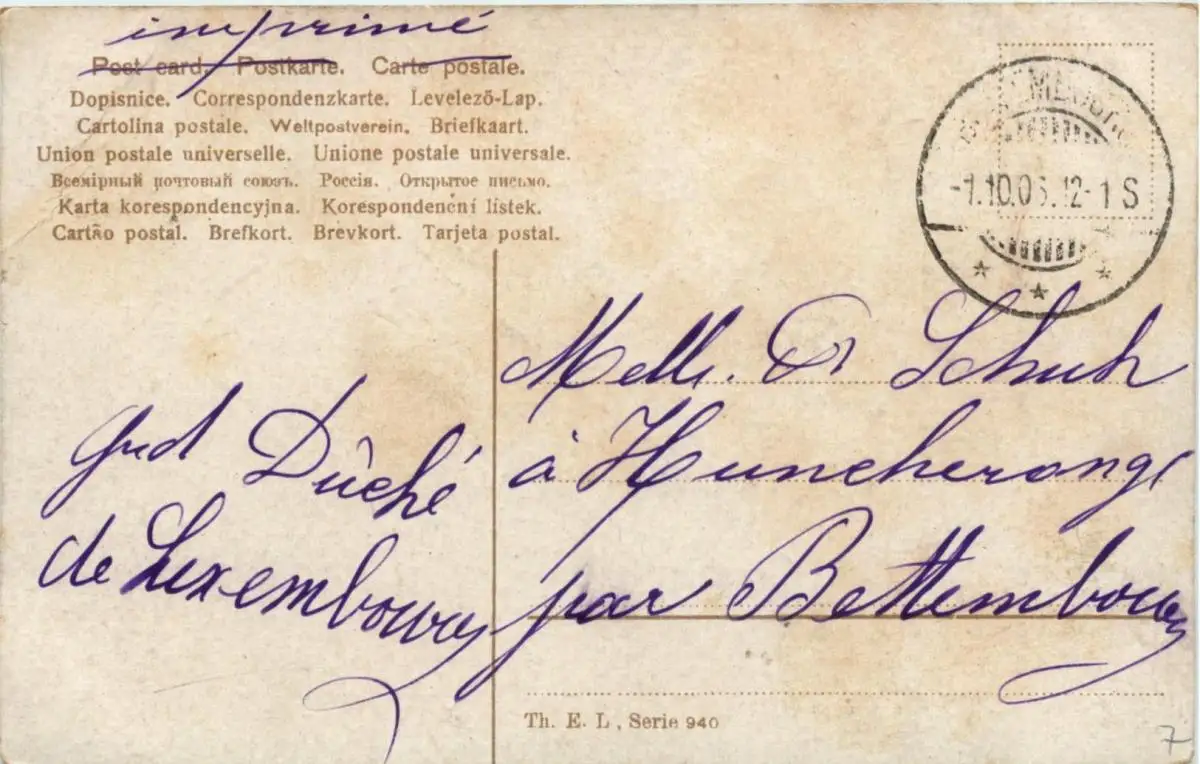 imprimé
Post card. Postkarte. Carte postale.
Dopisnice. Correspondenzkarte. Levelezö-Lap.
Cartolina postale. Weltpostverein. Briefkaart.
Union postale universelle. Unione postale universale.
Всемірный почтовый союзъ. Россія. Открытое письмо.
Karta korespondencyjna. Korespondenčni lístek.
Cartão postal. Brefkort. Brevkort. Tarjeta postal.
-1.10.05.12-1 S
Melle. Schuh
à Huncherange
par Bettembourg
Grd Dûché
de Luxembourg
Th. E. L, Serie 940
7